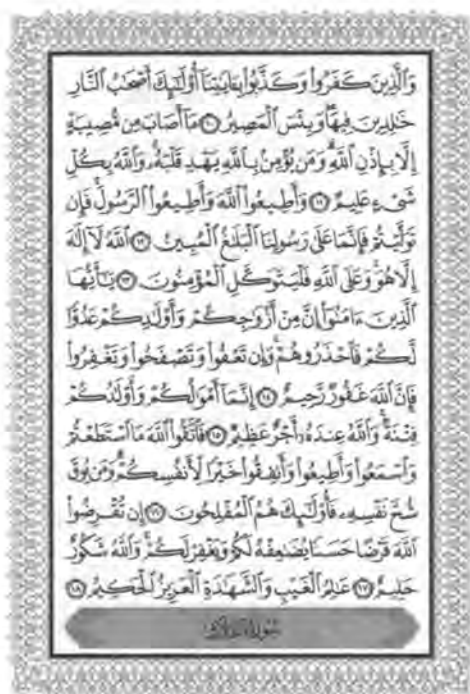 وَٱلَّذِينَ كَفَرُواْ وَكَذَّبُواْ بِـَٔايَٰتِنَآ أُوْلَٰٓئِكَ أَصْحَٰبُ ٱلنَّارِ
خَٰلِدِينَ فِيهَا ۖ وَبِئْسَ ٱلْمَصِيرُ ۝١٠ مَآ أَصَابَ مِن مُّصِيبَةٍ
إِلَّا بِإِذْنِ ٱللَّهِ ۗ وَمَن يُؤْمِنۢ بِٱللَّهِ يَهْدِ قَلْبَهُۥ ۚ وَٱللَّهُ بِكُلِّ
شَىْءٍ عَلِيمٌ ۝١١ وَأَطِيعُواْ ٱللَّهَ وَأَطِيعُواْ ٱلرَّسُولَ ۚ فَإِن
تَوَلَّيْتُمْ فَإِنَّمَا عَلَىٰ رَسُولِنَا ٱلْبَلَٰغُ ٱلْمُبِينُ ۝١٢ ٱللَّهُ لَآ إِلَٰهَ
إِلَّا هُوَ ۚ وَعَلَى ٱللَّهِ فَلْيَتَوَكَّلِ ٱلْمُؤْمِنُونَ ۝١٣ يَٰٓأَيُّهَا
ٱلَّذِينَ ءَامَنُوٓاْ إِنَّ مِنْ أَزْوَٰجِكُمْ وَأَوْلَٰدِكُمْ عَدُوًّا
لَّكُمْ فَٱحْذَرُوهُمْ ۚ وَإِن تَعْفُواْ وَتَصْفَحُواْ وَتَغْفِرُواْ
فَإِنَّ ٱللَّهَ غَفُورٌ رَّحِيمٌ ۝١٤ إِنَّمَآ أَمْوَٰلُكُمْ وَأَوْلَٰدُكُمْ
فِتْنَةٌ ۚ وَٱللَّهُ عِندَهُۥٓ أَجْرٌ عَظِيمٌ ۝١٥ فَٱتَّقُواْ ٱللَّهَ مَا ٱسْتَطَعْتُمْ
وَٱسْمَعُواْ وَأَطِيعُواْ وَأَنفِقُواْ خَيْرًا لِّأَنفُسِكُمْ ۗ وَمَن يُوقَ
شُحَّ نَفْسِهِۦ فَأُوْلَٰٓئِكَ هُمُ ٱلْمُفْلِحُونَ ۝١٦ إِن تُقْرِضُواْ
ٱللَّهَ قَرْضًا حَسَنًا يُضَٰعِفْهُ لَكُمْ وَيَغْفِرْ لَكُمْ ۚ وَٱللَّهُ شَكُورٌ
حَلِيمٌ ۝١٧ عَٰلِمُ ٱلْغَيْبِ وَٱلشَّهَٰدَةِ ٱلْعَزِيزُ ٱلْحَكِيمُ ۝١٨
سُورَةُ